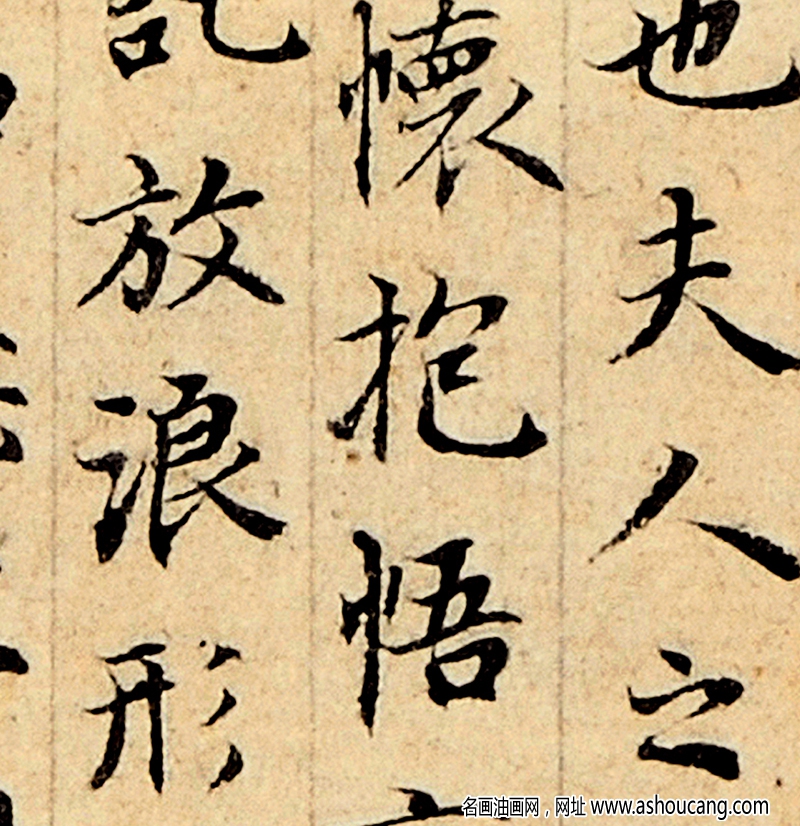 也夫人之
懷抱悟
放浪形
名画油画网，网址 www.ashoucang.com